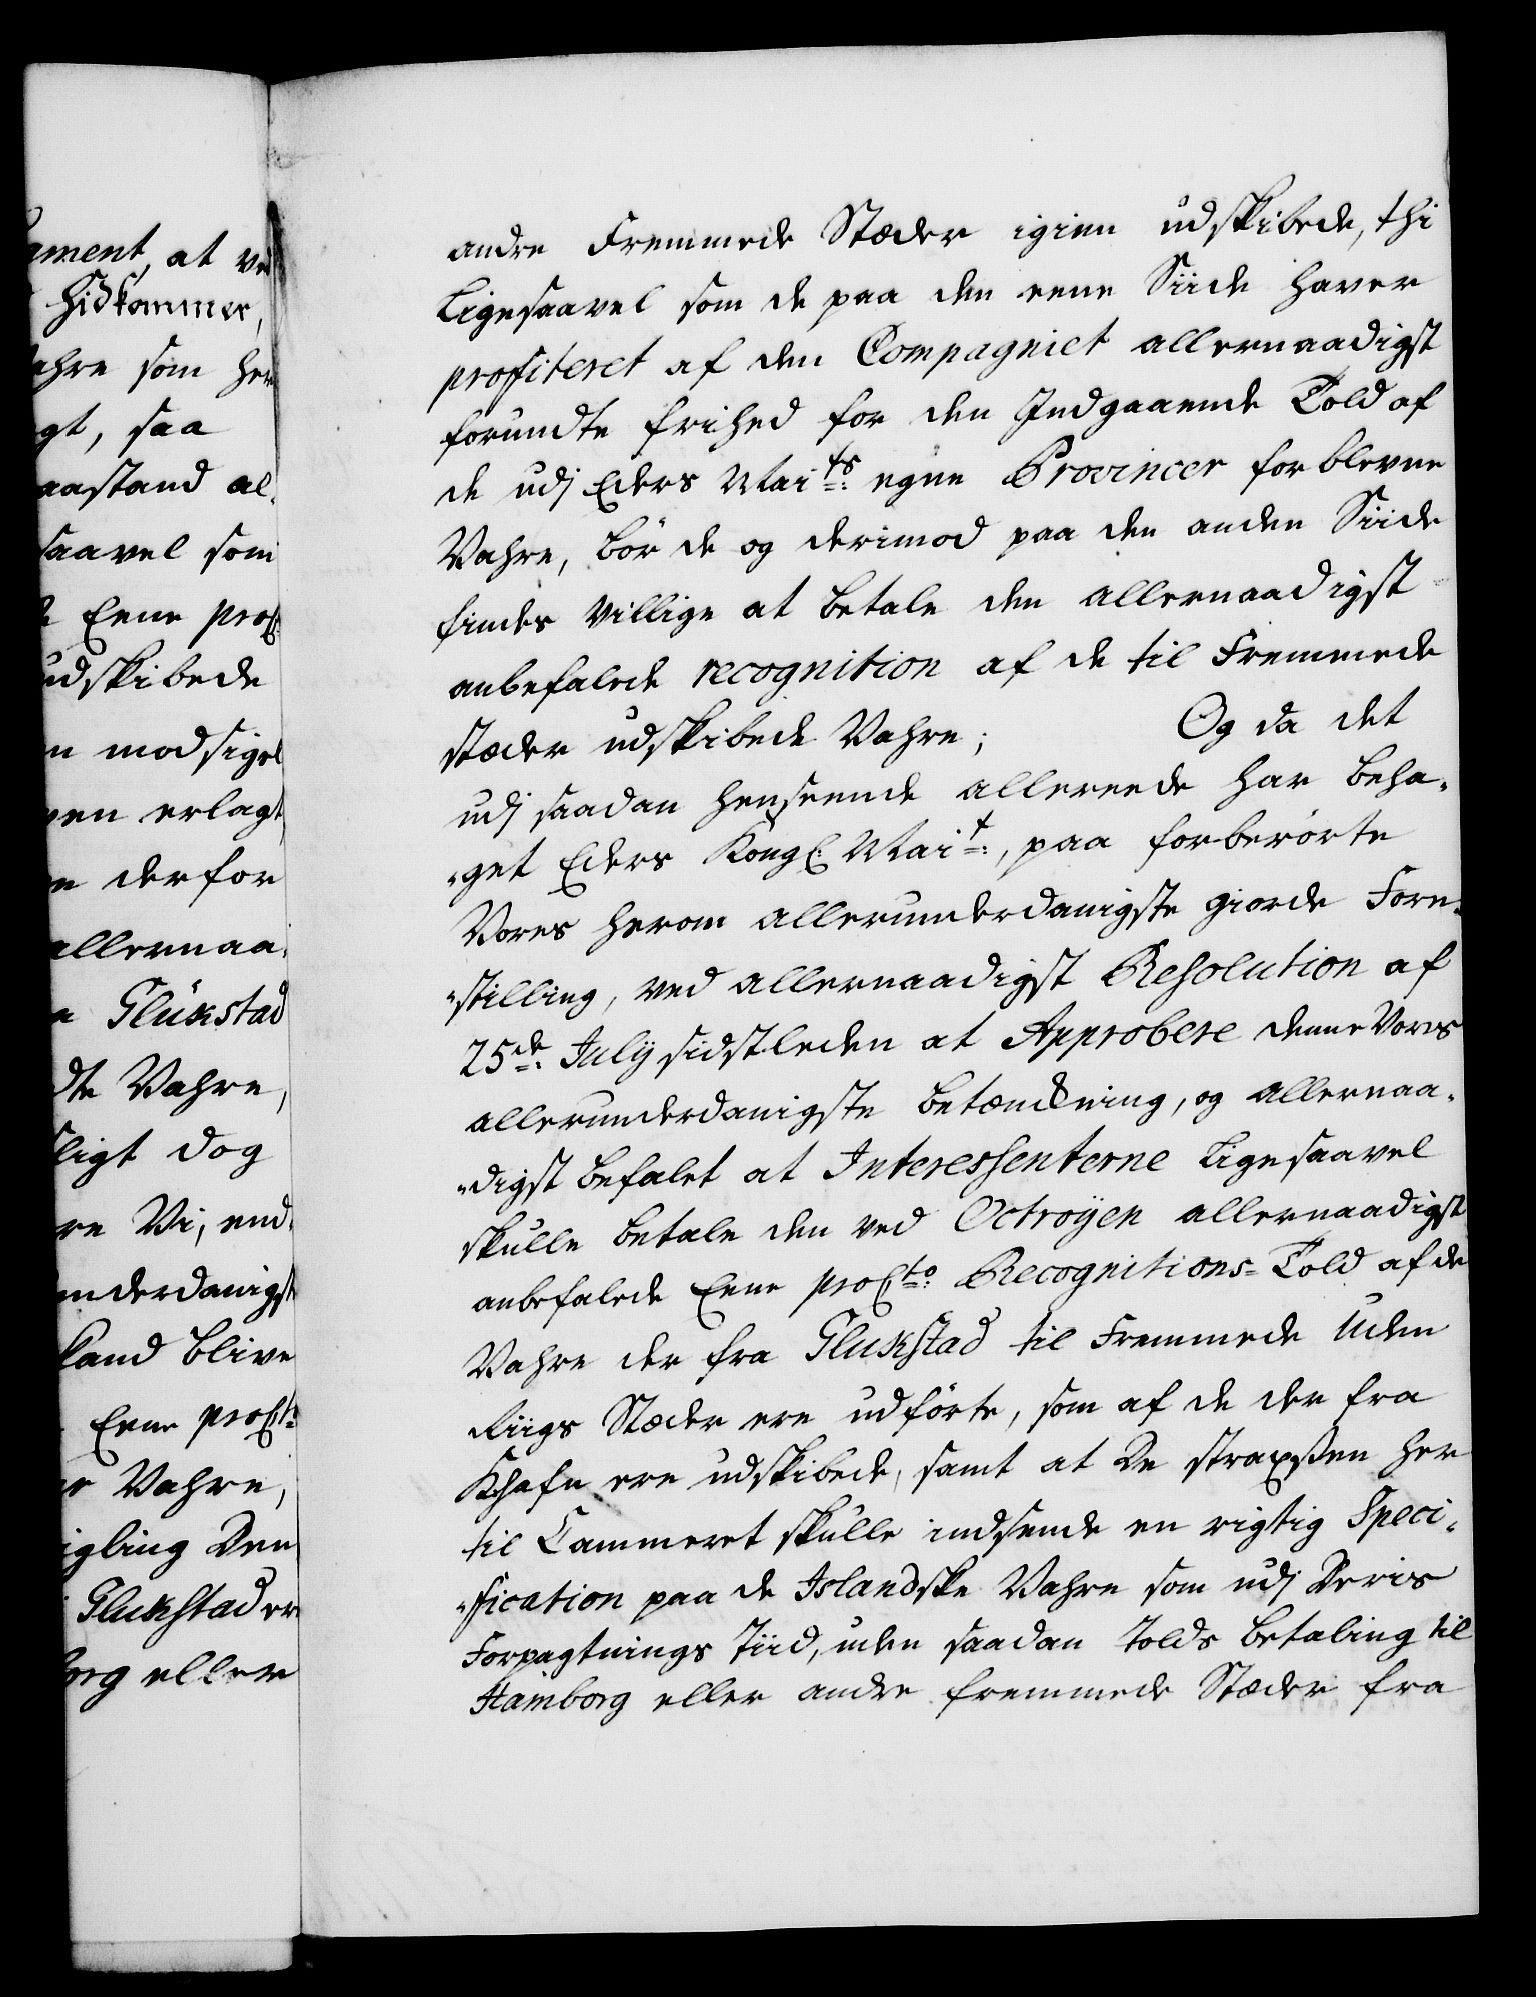 ament, at ved
hidkommer,
ahre som her
gt, saa
aastand al-
saavel som
Eene proC
udskibede
n modsigel
ven erlagt
n derfor
allernaa-
n Glükstad
dte Vahre,
ligt dog
re Vi, end-
underdanigst
kand blive
Eene proCto
r Vahre,
igling den
Glukstad er
org eller
andre Fremmede Stæder igien udskibede, thi
Ligesaavel som de paa den eene Siide haver
profiteret af den Compagniet allernaadigst
forundte frihed for den Indgaaende Told af
de udj Eders Maits: egne Provincer forblevne
Vahre, bör de og derimod paa den anden Siide
findes villige at betale den allernaadigst
anbefalede recognition af de til Fremmede
stæder udskibede Vahre; Og da det
udj saadan henseende allereede har beha-
-get Eders Kongl: Mait:, paa forberörte
Vores herom allerunderdanigste giorde Fore-
-stilling, ved allernaadigst Resolution af
25de: Julÿ sidstleden at Approbere denne Vores
allerunderdanigste betænkning, og allernaa-
-digst befalet at Interessenterne Ligesaavel
skulle betale den ved Octroÿen allernaadigst
anbefalede Eene proCto: Recognitions-Told af de
Vahre der fra Glukstad til Fremmede Uden
Riigs Stæder ere udförte, som af de der fra
Khafn ere udskibede, samt at De straxsen her
til Cammeret skulle indsende en rigtig Speci-
-fication paa de Islandske Vahre som udj Deris
Forpagtnings Tiid, uden saadan Tolds betaling til
Hamborg eller andre fremmede Stæder fra